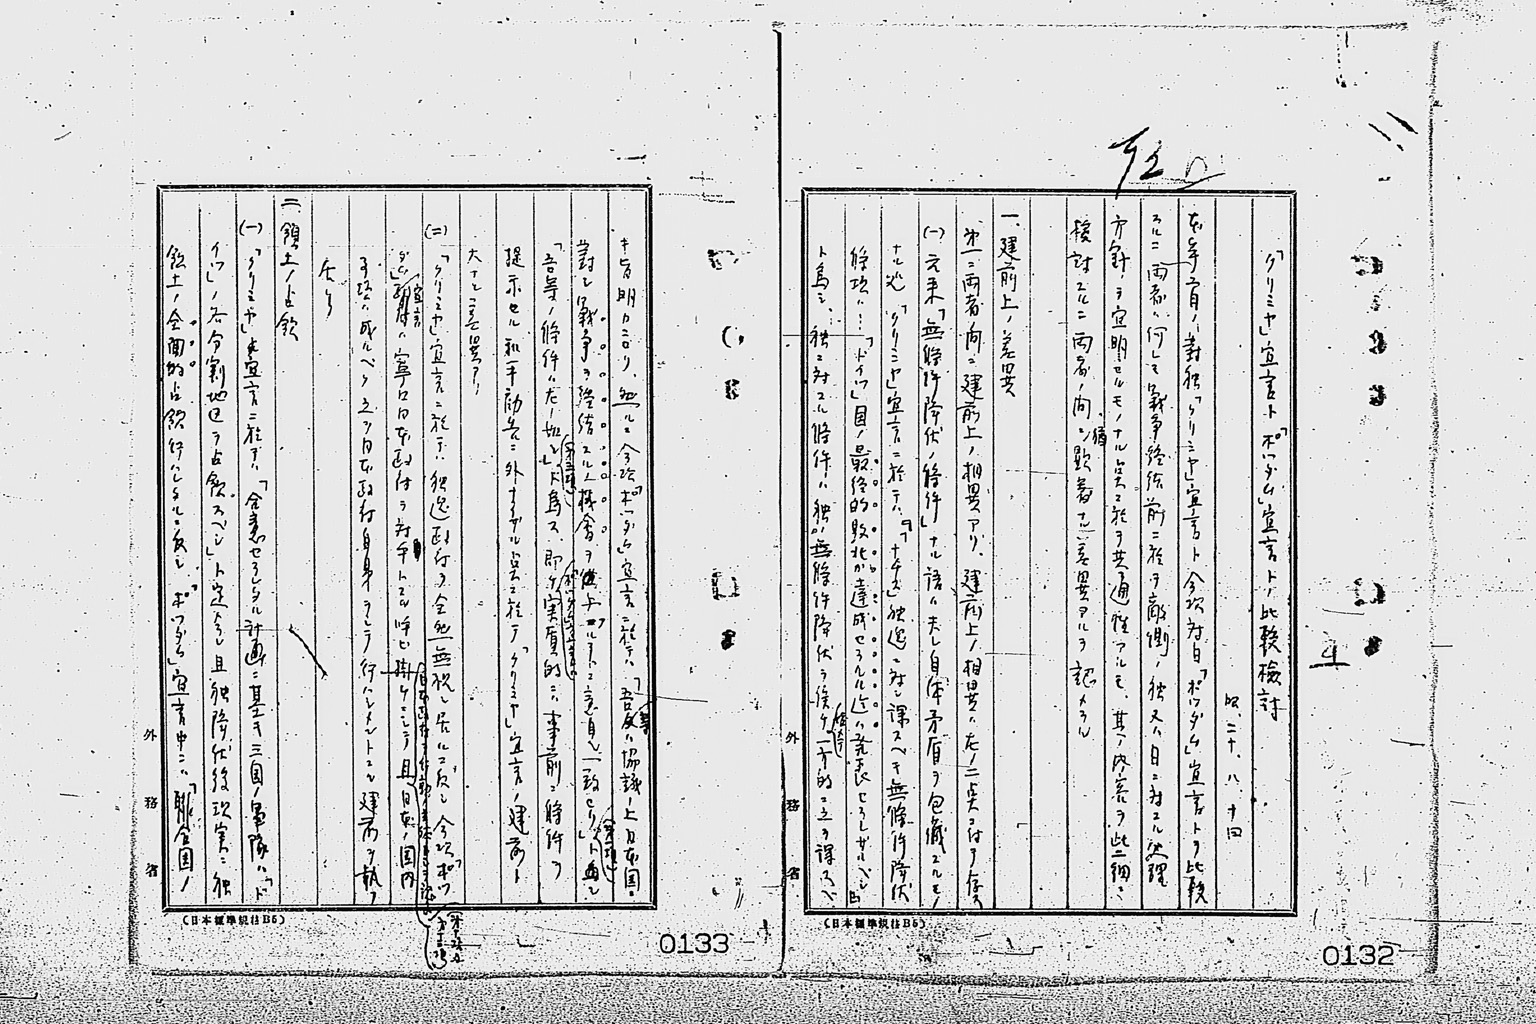 「クリミヤ」宣言ト「ポツダム」宣言トノ比較検討
昭、二十、八、十四
本年二月ノ対独「クリミヤ」宣言ト今次対日「ポツダム」宣言トヲ比較
スルニ両者ハ何レモ戦争終結前ニ於テ敵側ノ独又ハ日ニ対スル処理
方針ヲ宣明セルモノナル点ニ於テ共通性アルモ、其ノ内容ヲ仔細ニ
検討スルニ両者ノ間ニ顕著ナル差異アルヲ認メラル
一、建前上ノ差異
第一ニ両者ノ間ニ建前上ノ相異アリ、建前上ノ相異ハ左ノ二点ニ付テ存ス
(一)元来「無条件降伏ノ条件」ナル語ハ夫レ自体矛盾ヲ包蔵スルモノ
ナル処「クリミヤ」宣言ニ於テハ「「ナチス」独逸ニ対シ課スベキ無条件降伏
条項ハ…「ドイツ」国ノ最終的敗北ガ達成セラルル迄ハ発表セラレザルベシ」
ト為シ、独ニ対スル条件ハ独ガ無条件降伏ヲ俟ケ一方的ニ之ヲ課スベ
外務省
(日本標準規格B5)
0132
キ旨明カニシ、然ルニ今次「ポツダム」宣言ニ於テハ「吾等ハ協議ノ上日本国ニ
対シ戦争ヲ終結スル機会ヲ与フルコトニ意見一致セリ」(第一項)ト述べ
「吾等ノ条件ハ左ノ如シ」(第五項)ト為ス、即チ実質的ニハ事前ニ条件ヲ
提示セル和平勧告ニ外ナラザル点ニ於テ「クリミヤ」宣言ノ建前ト
大ナル差異アリ
(二)「クリミヤ」宣言ニ於テハ独逸政府ヲ全然無視シ居ルニ反シ今次「ポツ
ダム」宣言ハ寧ロ日本政府ヲ対手トスル呼ビ掛ケニシテ且日本国内
事項ハ成ルベク之ヲ日本政府自身ヲシテ行ハシメントスル建前ヲ執リ
居レリ
二、領土ノ占領
(一)「クリミヤ」宣言ニ於テハ「合意セラレタル計画ニ基キ三国ノ軍隊ハ「ド
イツ」ノ各分割地区ヲ占領スベシ」ト定メラレ且独降伏後現実ニ独
領土ノ全面的占領行ハレタルニ反シ「ポツダム」宣言中ニハ「聯合国ノ
外務省
(日本標準規格B5)
0133